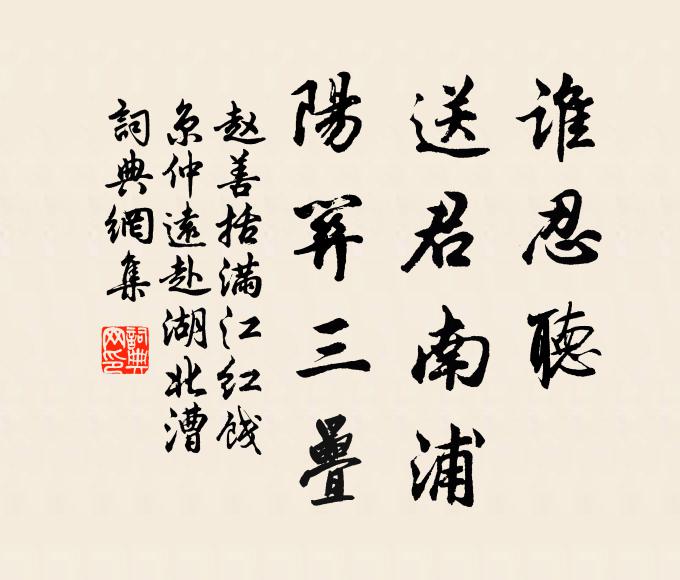 誰忍聽
送君南浦
陽關三疊
赵善括滿江红饯
京仲遠赴湖北漕
詞典網集
詞典网印